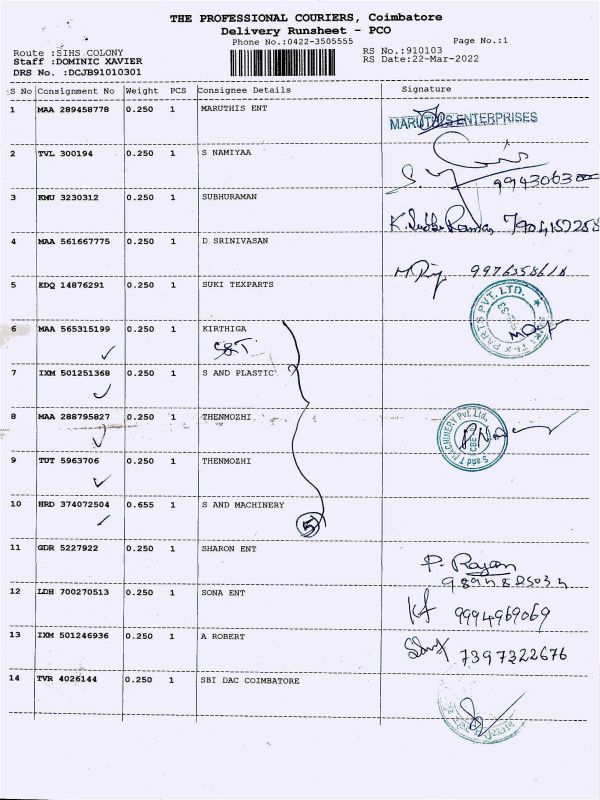 THE PROFESSIONAL COURIERS, Coimbatore
Delivery Runsheet - PCO
Phone No.:0422-3505555 Page No.:1
Route :SIHS COLONY RS No.:910103
Staff :DOMINIC XAVIER RS Date:22-Mar-2022
DRS No. :DCJB91010301
S No Consignment No Weight PCS Consignee Details Signature
1 MAA 289458778 0.250 1 MARUTHIS ENT
MARUTHIS ENTERPRISES
2 TVL 300194 0.250 1 S NAMIYAA
3 KMU 3230312 0.250 1 SUBHURAMAN
4 MAA 561667775 0.250 1 D SRINIVASAN
9976358618
5 EDQ 14876291 0.250 1 SUKI TEXPARTS
PARTS PVT. LTD.
6 MAA 565315199 0.250 1 KIRTHIGA
S&T
7 IXM 501251368 0.250 1 S AND PLASTIC
8 MAA 288795827 0.250 1 THENMOZHI
S and T MACHINERY Pvt. Ltd. CBE
9 TUT 5963706 0.250 1 THENMOZHI
10 HRD 374072504 0.655 1 S AND MACHINERY
5
11 GDR 5227922 0.250 1 SHARON ENT
P. Rajan
12 LDH 700270513 0.250 1 SONA ENT
9994969069
13 IXM 501246936 0.250 1 A ROBERT
7397322676
14 TVR 4026144 0.250 1 SBI DAC COIMBATORE